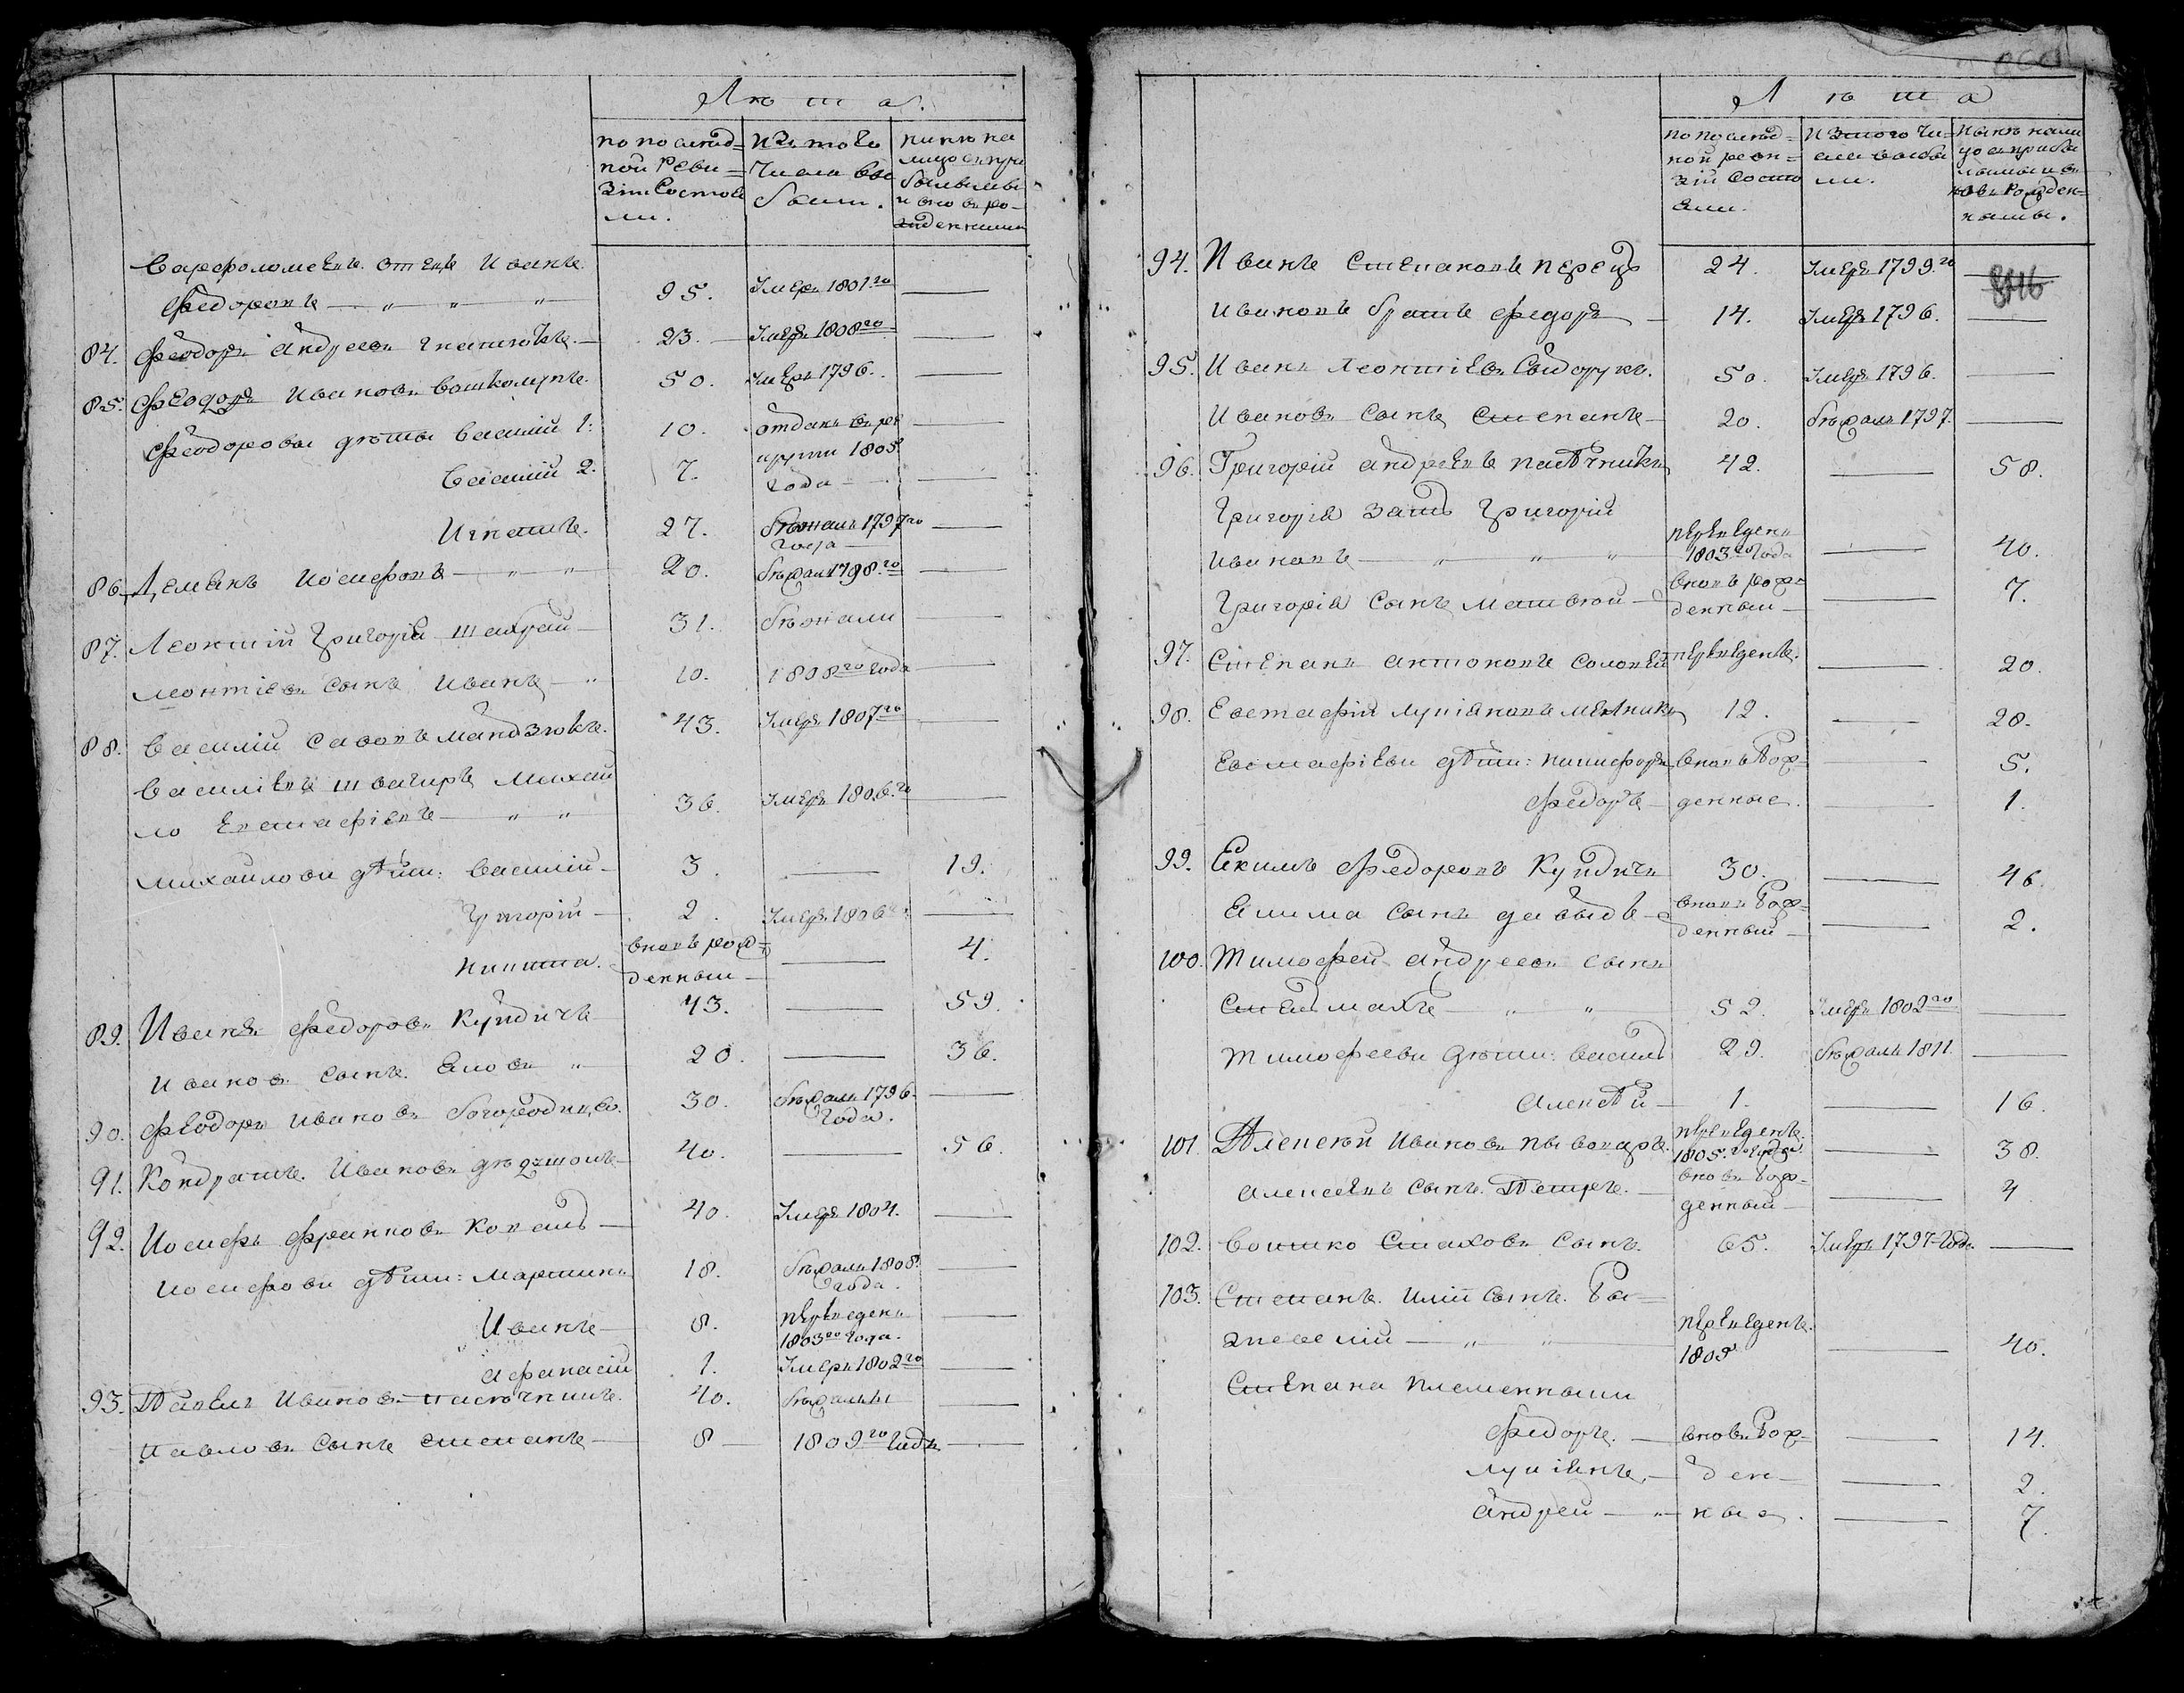 Лѣта.
по послѣд=
ной Реви=
зіи Состоя
ли.
Изъ того
Числа вы
были.
нынѣ на
лицо съ при
былыми
и вновь ро=
жденными
Варфоломеевъ отецъ Иванъ
Федоровъ — " — " — " 95. Умеръ 1801го —
84. Феодоръ Андреевъ Гнатюкъ. — 23. — Умеръ 1808го —
85. Феодоръ Ивановъ 50. Умеръ 1796. —
Феодоровы дѣты Василій 1: 10. отданъ въ рек —
рути 1805
Василій 2. 7. года — —
Игнатъ. 27. бѣжалъ 1797го —
года
86. Демянъ Иосифовъ — " — " 20. бѣжалъ 1798.го —
87. Леонтій Григорія Шахрай — 31. бѣжали —
Леонтіевъ Сынъ Иванъ — " 10. 1808го года —
88. Василій Савовъ Мандзюкъ. 43. Умеръ 1807го —
Василіевъ швагиръ Михай
ло Евстафіевъ — " — " 36. Умеръ 1806.го —
Михайлови дѣти: Василій — 3. — 19.
Григорій — 2. Умеръ 1806го —
Никита. вновь рож=
денный — — 4.
89. Иванъ Федоровъ Кундичъ 43. — 59.
Ивановъ Сынъ Яковъ " 20. — 36.
90. Феодоръ Ивановъ 30. бѣжалъ 1796. —
года.
91. Кондратъ Ивановъ 40. — 56.
92. Иосифъ Франковъ Коваль — 40. Умеръ 1804. —
Иосифови дѣти: Мартинъ 18. бѣжалъ 1808. —
года.
Иванъ — 8. переведенъ —
1803го года.
Афанасій 1. Умеръ 1802го —
93. Павелъ Ивановъ Пасѣчникъ. 40. бѣжалы —
Павловъ Сынъ Степанъ — 8 — 1809го года —
Лѣта
по послѣд=
ной реви=
зіи Состо
яли.
Изъ того Чи=
сла выбы
ли.
Нынѣ нали
цо съ прибы
лыми и в
новь Рожден=
ными.
94. Иванъ Степановъ Перецъ 24. Умеръ 1799.го —
Ивановъ братъ Федоръ — 14. Умеръ 1796. —
95. Иванъ Леонтіевъ Сыдорукъ. 50. Умеръ 1796. —
Ивановъ Сынъ Степанъ — 20. бѣжалъ 1797. —
96. Григорій Андреевъ Пасѣчникъ 42. — 58.
Григорія Зять Григорій
Ивановъ — " — " — " переведенъ
1803го года — 40.
Григорія Сынъ Матвѣй — вновь рож=
денный — — 7.
97. Степанъ Антоновъ Соловей переведенъ. — 20.
98. Евстафій Лукіановъ Мелникъ 12. — 28.
Евстафіеви дѣти: Никифоръ вновь Рож= — 5.
Федоръ — денные. — 1.
99. Екимъ Федоровъ Кундичъ 30. — 46.
Якима Сынъ Давыдъ — вновь Рож=
денный — — 2.
100. Тимофей Андреевъ Сынъ
Стельмахъ — " — " 52. Умеръ 1802го —
Тимофееви дѣти: Василь 29. бѣжалъ 1811. —
Алексѣй — 1. — 16.
101. Алексѣй Ивановъ Пивоваръ. переведенъ.
1805.го года — 38.
Алексеевъ Сынъ Петръ. — вновь Рож=
денный — — 4
102. Войтко Стаховъ Сынъ. 65. Умеръ 1797 года —
103. Степанъ Илїи Сынъ
— " переведенъ.
1805 — 40.
Степана племенныки
Федоръ. — вновь Рож= — 14.
Лукіянъ, — ден — — 2.
Андрей — " — ные. — 7.